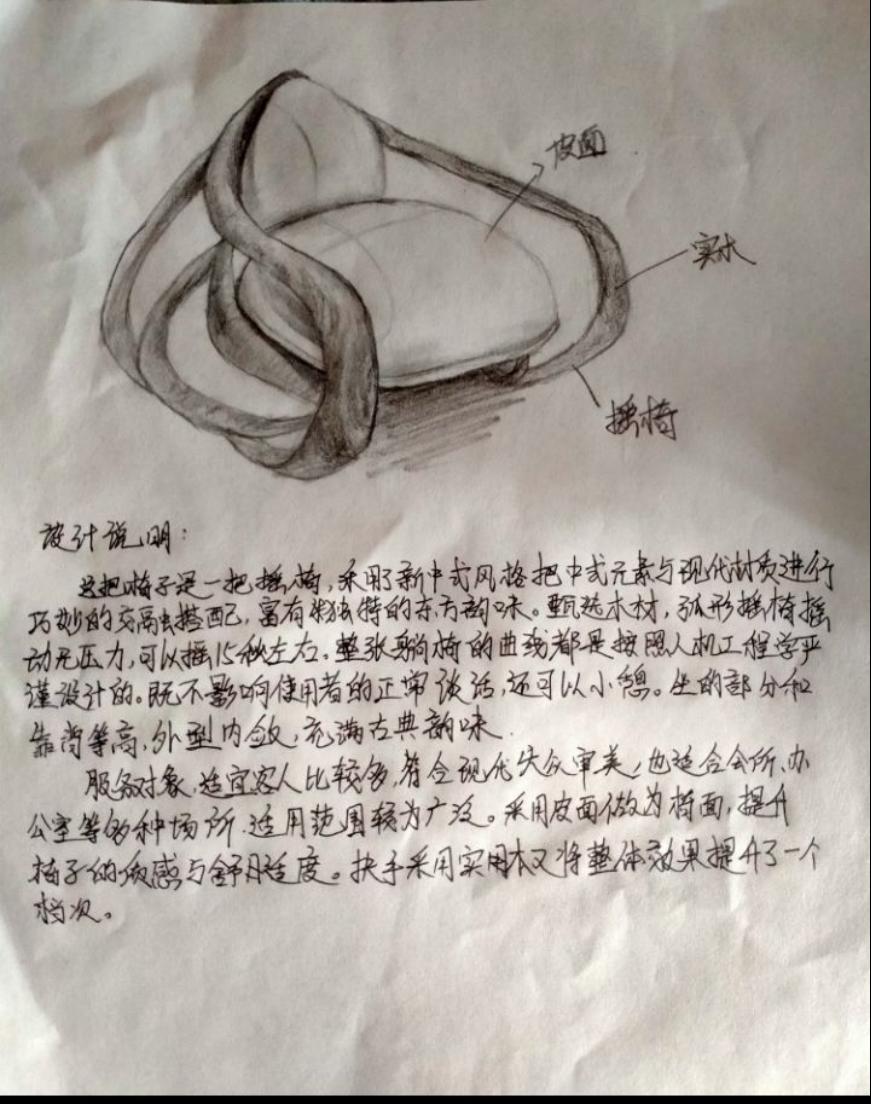 皮面
实木
摇椅
设计说明:
这把椅子是一把摇椅,采用了新中式风格把中式元素与现代材质进行
巧妙的交融搭配,富有独特的东方韵味。甄选木材,弧形摇椅摇
动无压力,可以摇15秒左右。整张躺椅的曲线都是按照人机工程学严
谨设计的。既不影响使用者的正常谈话,还可以小憩。坐的部分和
靠背等高,外型内敛,充满古典韵味.
服务对象,适宜客人比较多,符合现代大众审美,也适合会所、办
公室等多种场所.适用范围较为广泛。采用皮面做为椅面,提升
椅子的质感与舒适度。扶手采用实用木又将整体效果提升了一个
档次。